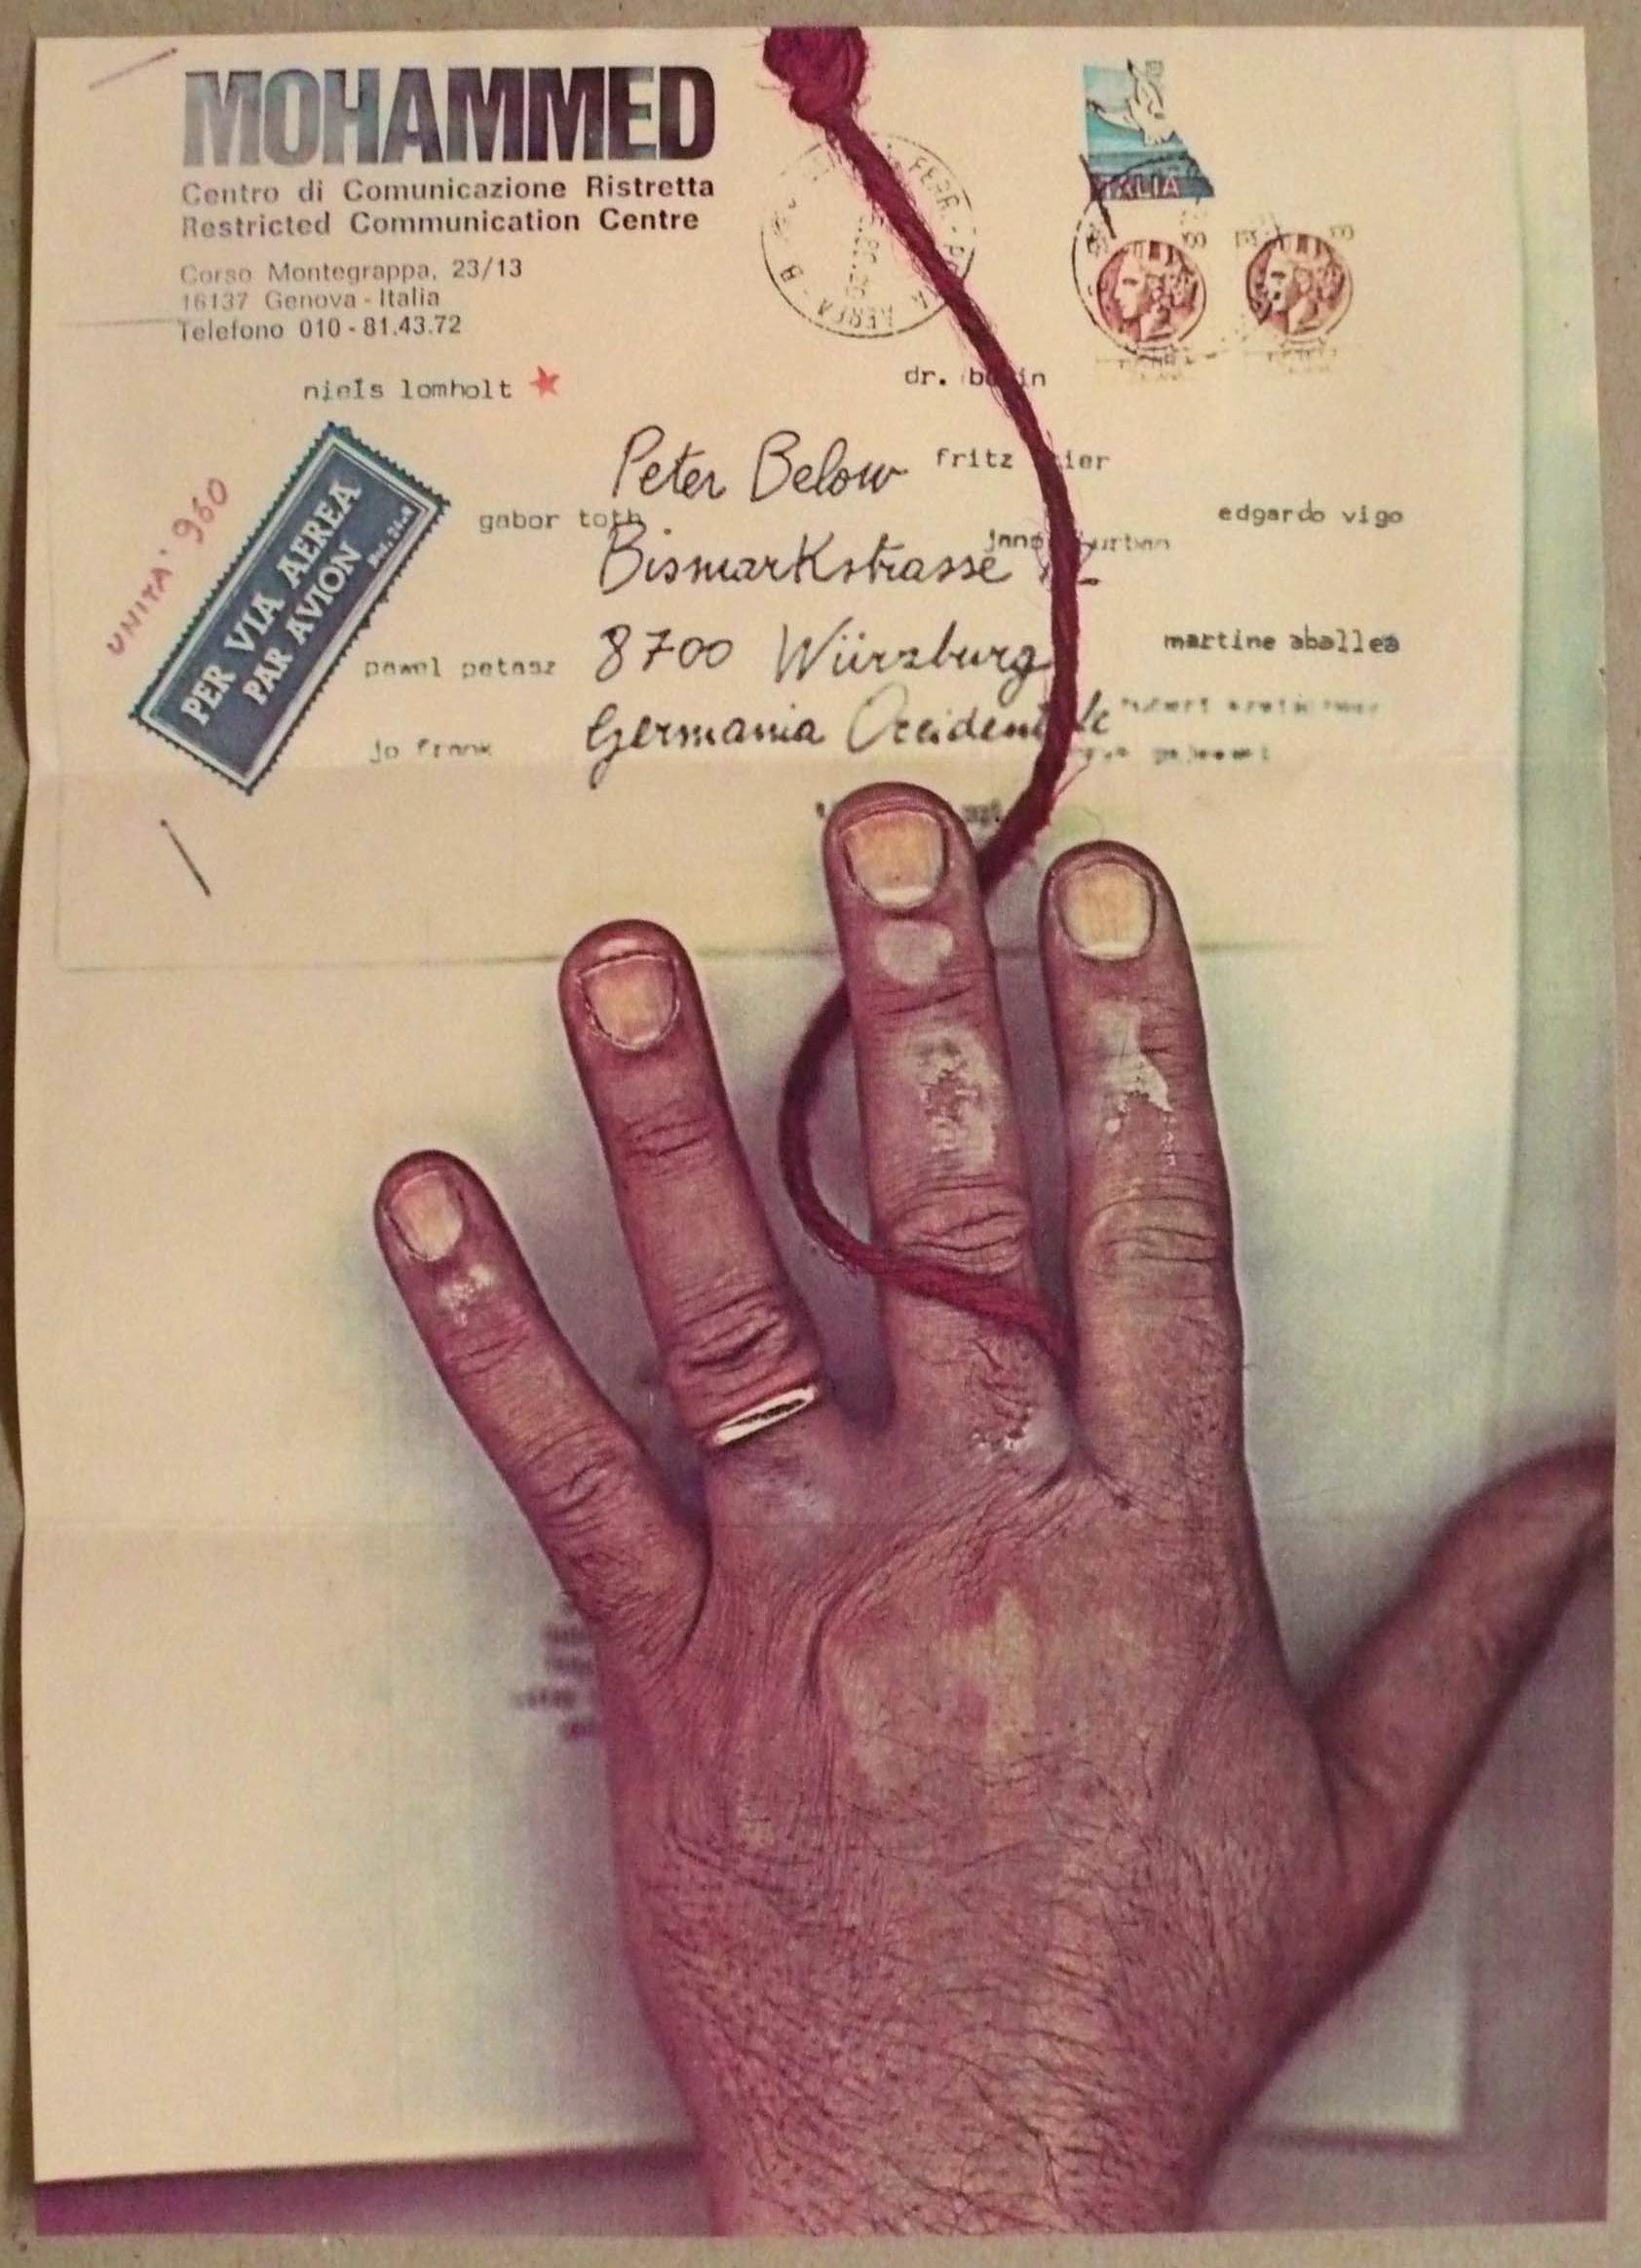 MOHAMMED
Centro di Comunicazione Ristretta
Restricted Communication Centre
Corso Montegrappa, 23/13
16137 Genova - Italia
Telefono 010 - 81.43.72
ITALIA
niels lomholt
dr.
Peter Below
fritz
gabor toth
edgardo vigo
Bismarkstrasse
UNITA' 960
PER VIA AEREA
PAR AVION
martine aballea
pawel petasz
8700 Würzburg
Germania Occidentale
jo frank